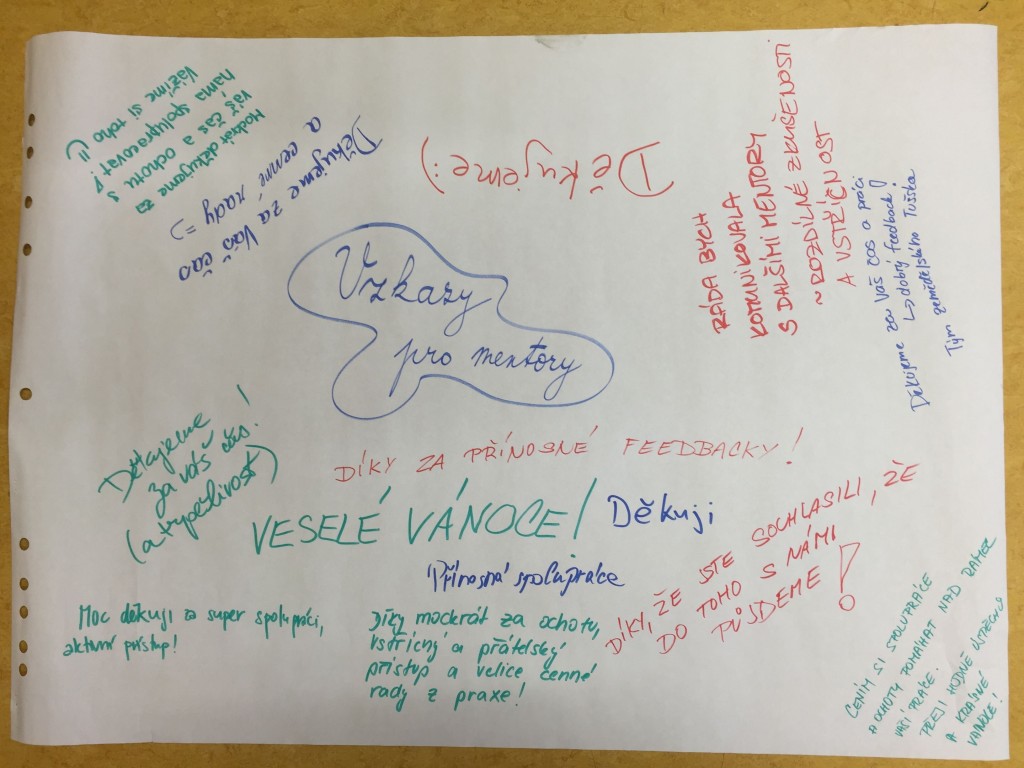 Vzkazy
pro mentory
Mockrát děkujeme za
váš čas a ochotu s
náma spolupracovat!
Vážíme si toho
Děkujeme za Váš čas
a cenné rady =)
Děkujeme :)
RÁDA BYCH
KOMUNIKOVALA
S DALŠÍMI MENTORY
~ ROZDÍLNÉ ZKUŠENOSTI
A VSTŘÍCNOST
Děkujeme za Váš čas a práci
↳ dobrý feedback!
Tým zemědělského Tuška
Děkujeme
za váš čas!
(a trpělivost)
DÍKY ZA PŘÍNOSNÉ FEEDBACKY!
VESELÉ VÁNOCE!
Děkuji
Přínosná spolupráce
DÍKY, ŽE JSTE SOUHLASILI, ŽE
DO TOHO S NÁMI
PŮJDEME!
Moc děkuji za super spolupráci,
aktivní přístup!
Díky mockrát za ochotu,
vstřícný a přátelský
přístup a velice cenné
rady z praxe!
CENÍM SI SPOLUPRÁCE
A OCHOTY POMÁHAT NAD RÁMEC
VAŠÍ PRÁCE.
PŘEJI HODNĚ ÚSPĚCHŮ
A KRÁSNÉ
VÁNOCE!